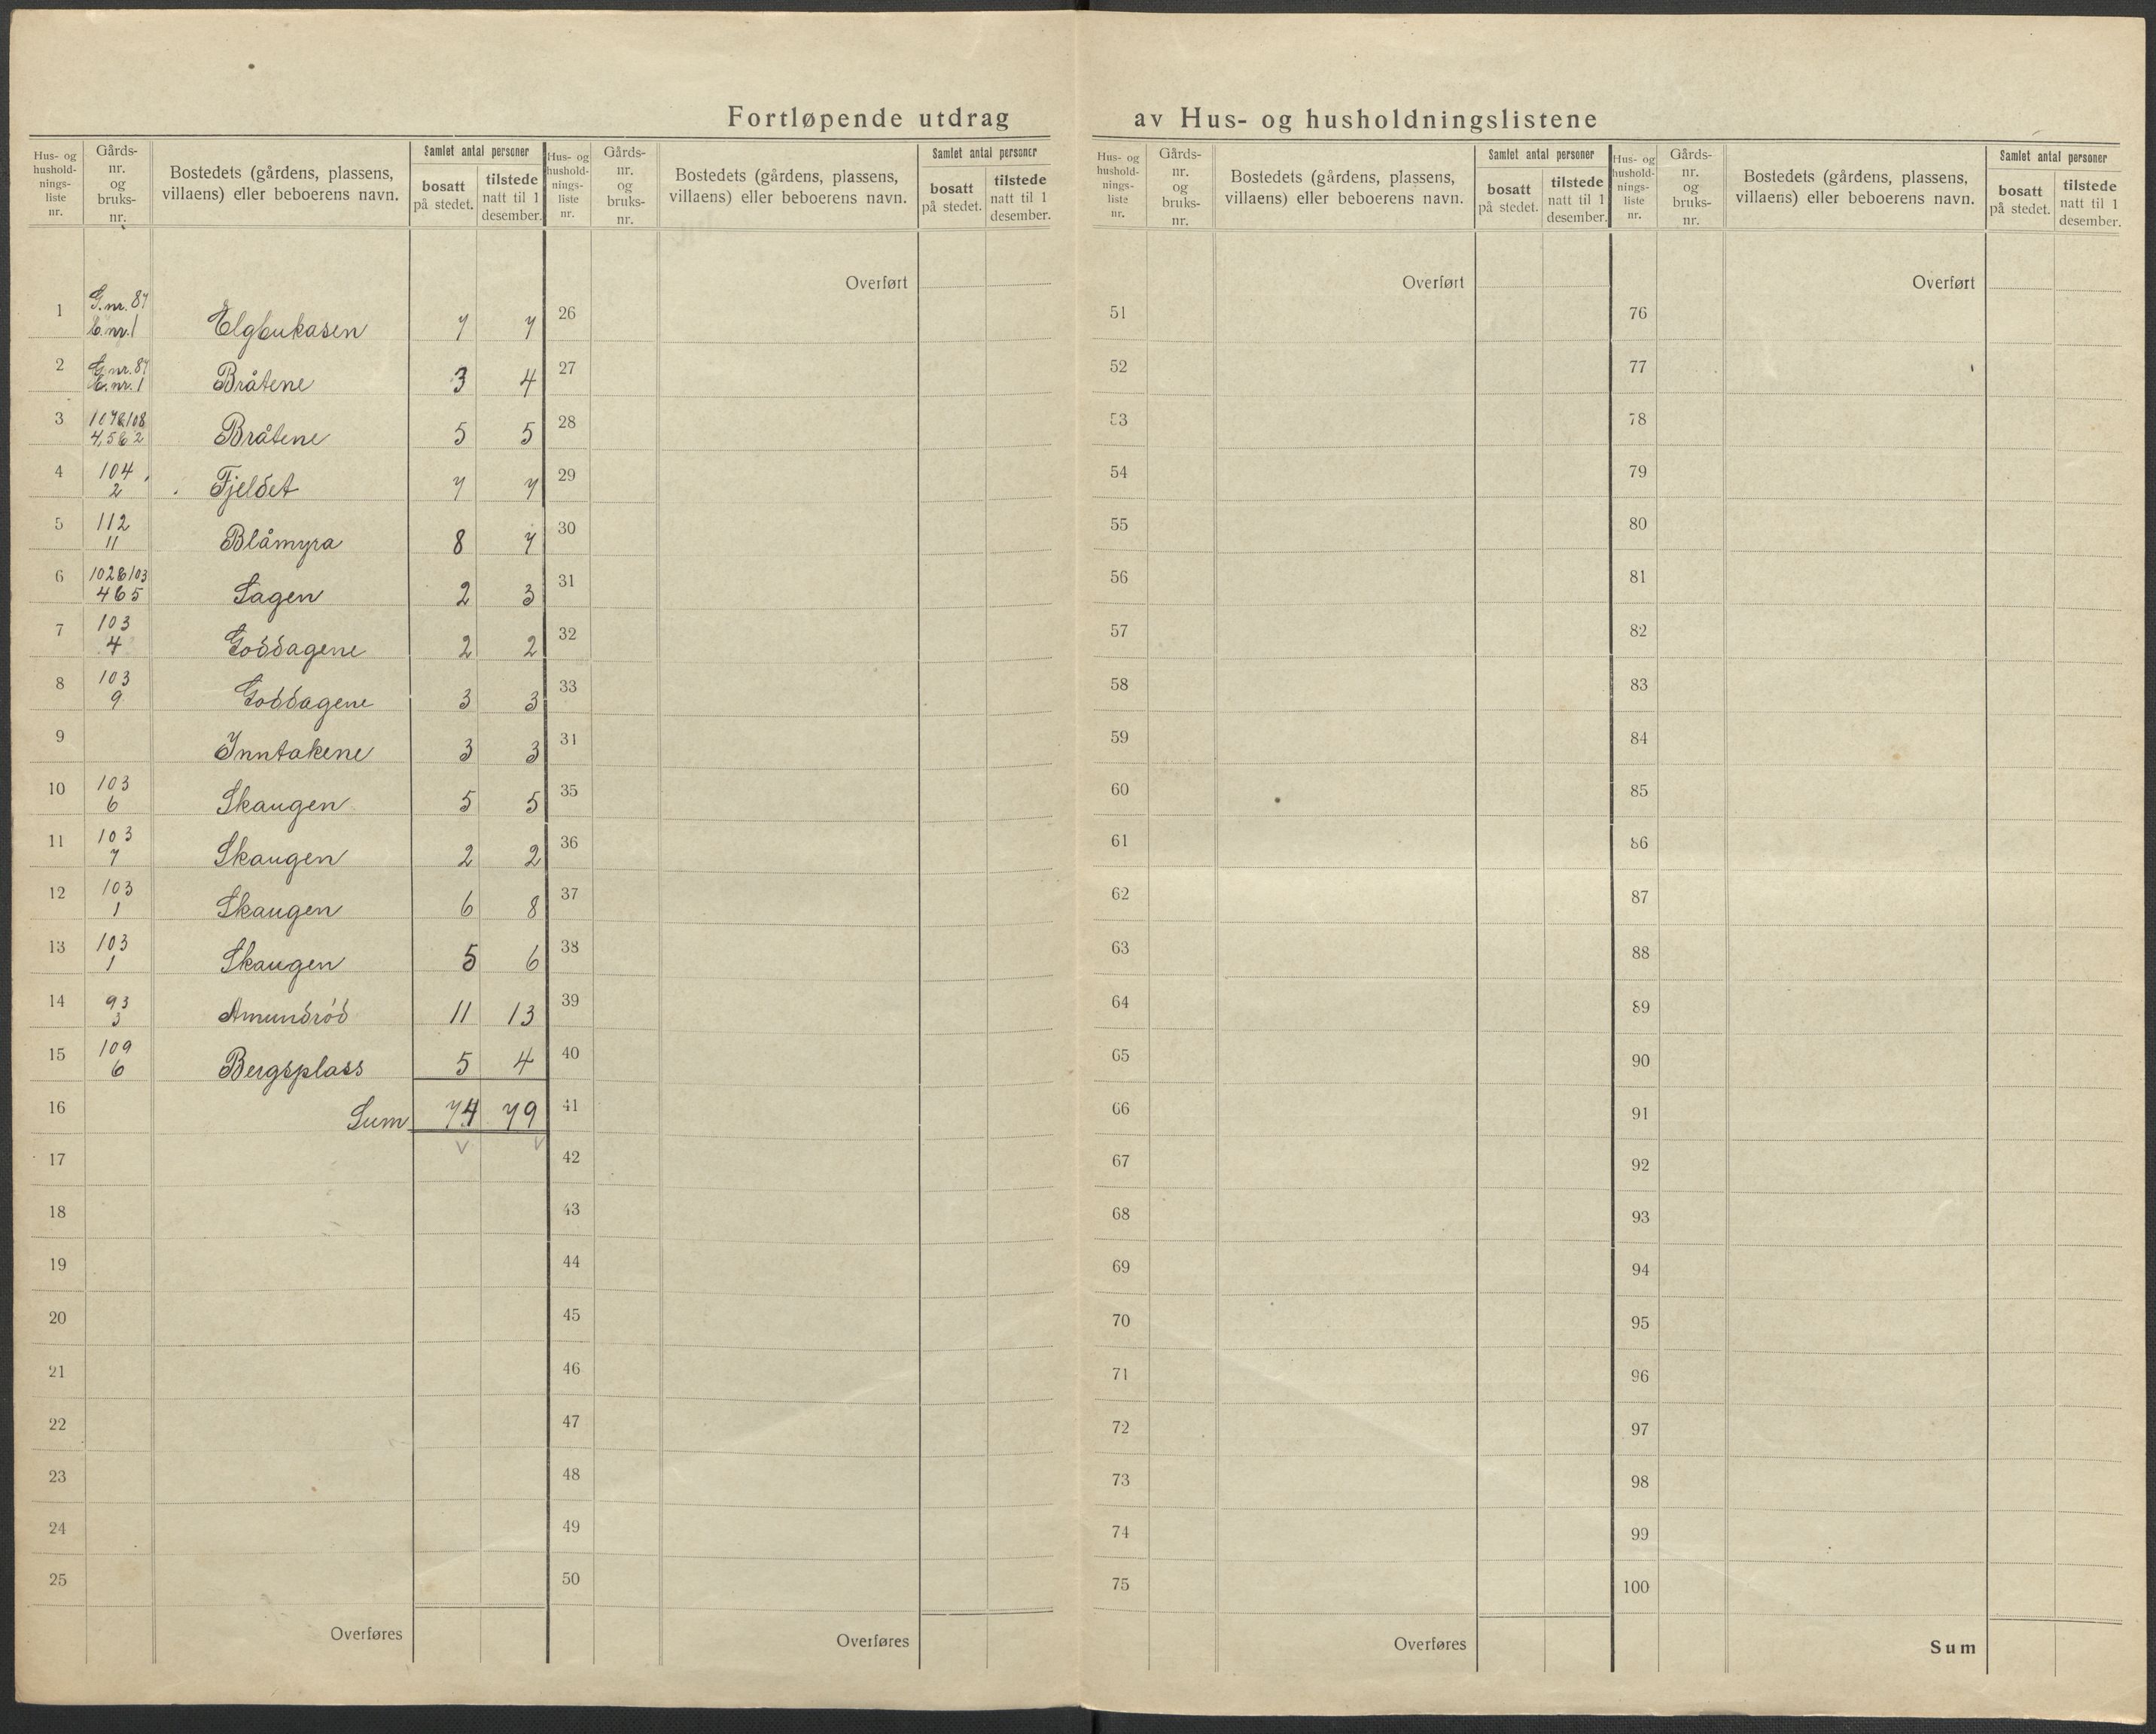 Fortløpende utdrag av Hus- og husholdningslistene
Hus- og hushold- nings- liste nr.
Gårds- nr. og bruks- nr.
Bostedets (gårdens, plassens, villaens) eller beboerens navn.
Samlet antal personer
bosatt på stedet.
tilstede natt til 1 desember.
Hus- og hushold- nings- liste nr.
Gårds- nr. og bruks- nr.
Bostedets (gårdens, plassens, villaens) eller beboerens navn.
Samlet antal personer
bosatt på stedet.
tilstede natt til 1 desember.
Hus- og hushold- nings- liste nr.
Gårds- nr. og bruks- nr.
Bostedets (gårdens, plassens, villaens) eller beboerens navn.
Samlet antal personer
bosatt på stedet.
tilstede natt til 1 desember.
Hus- og hushold- nings- liste nr.
Gårds- nr. og bruks- nr.
Bostedets (gårdens, plassens, villaens) eller beboerens navn.
Samlet antal personer
bosatt på stedet.
tilstede natt til 1 desember.
1 G.nr. 87 B.nr. 1 Elgbukasen 7 7
2 G.nr. 87 B.nr. 1 Bråtene 3 4
3 107&108 4,5&2 Bråtene 5 5
4 104 2 Fjeldet 7 7
5 112 11 Blåmyra 8 7
6 102&103 4&5 Sagen 2 3
7 103 4 Goddagene 2 2
8 103 9 Goddagene 3 3
9 Inntakene 3 3
10 103 6 Skaugen 5 5
11 103 7 Skaugen 2 2
12 103 1 Skaugen 6 8
13 103 1 Skaugen 5 6
14 93 3 Amundrød 11 13
15 109 6 Bergsplass 5 4
16 Sum 74 79
17
18
19
20
21
22
23
24
25
Overføres
Overført
26
27
28
29
30
31
32
33
31
35
36
37
38
39
40
41
42
43
44
45
46
47
48
49
50
Overføres
Overført
51
52
53
54
55
56
57
58
59
60
61
62
63
64
65
66
67
68
69
70
71
72
73
74
75
Overføres
Overført
76
77
78
79
80
81
82
83
84
85
86
87
88
89
90
91
92
93
94
95
96
97
98
99
100
Sum